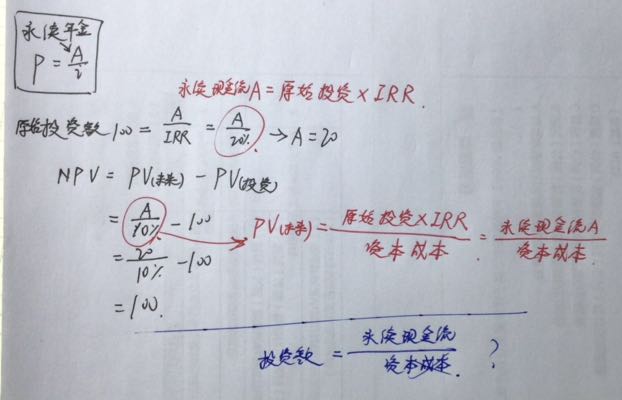 永续年金
P = A/i
永续现金流A = 原始投资 × IRR.
原始投资数100 = A/IRR = A/20% → A=20
NPV = PV(未来) - PV(投资)
= A/10% - 100
PV(未来) = 原始投资×IRR/资本成本 = 永续现金流A/资本成本.
= 20/10% - 100
= 100.
投资数 = 永续现金流/资本成本. ?